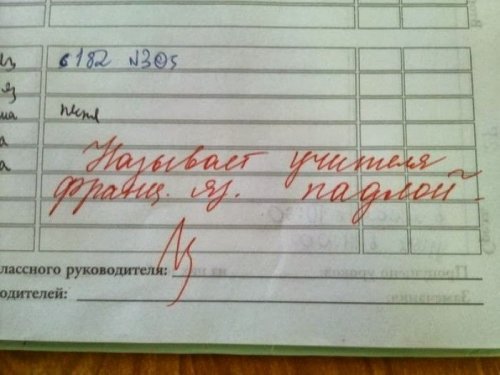 с 182 №305
яз
Называет учителя
франц. яз. падлой.
лассного руководителя:
одителей: